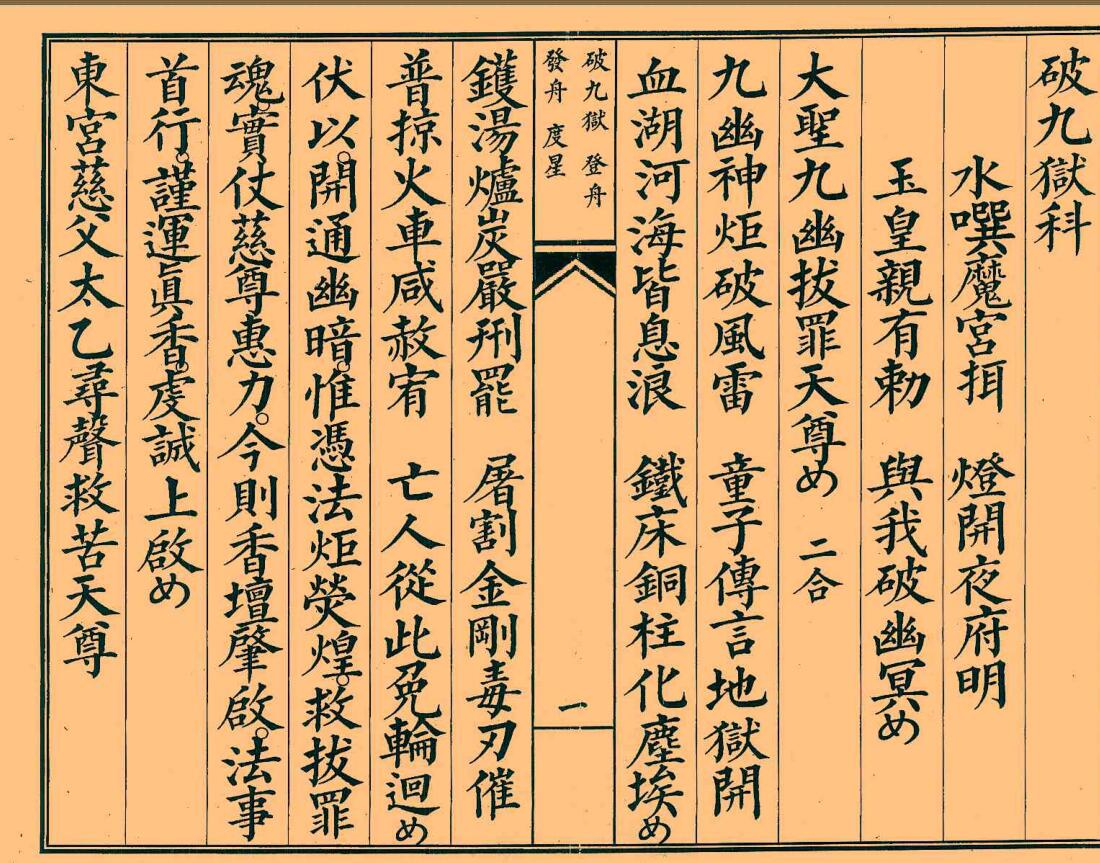 破九獄科
水噀魔宮揖 燈開夜府明
玉皇親有勅 與我破幽冥め
大聖九幽拔罪天尊め 二合
九幽神炬破風雷 童子傳言地獄開
血湖河海皆息浪 鐵床銅柱化塵埃め
破九獄 登舟
發舟 度星
一
鑊湯爐炭嚴刑罷 屠割金剛毒刃催
普掠火車咸赦宥 亡人從此免輪迴め
伏以。開通幽暗。惟憑法炬熒煌。救拔罪
魂。實仗慈尊惠力。今則香壇肇啟。法事
首行。謹運眞香。虔誠上啟め
東宮慈父太乙尋聲救苦天尊